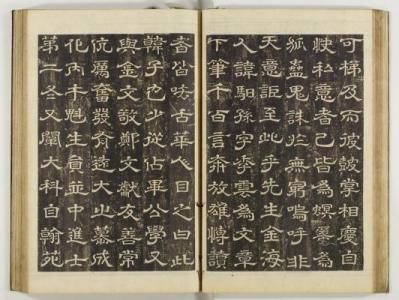 可梯及而彼鼓掌相慶自
快私意者己皆為螟為
狐蠱鬼誅於無窮嗚呼非
天意詎至此乎先生金海
人諱馹孫字季雲為文章
下筆千百言奔放雄博讀
者皆咲古華人目之曰此
韓子也少從佔畢公學又
與金文敬鄭文獻友善常
伉厲奮發有遠大之慕成
化丙午魁生員並中進士
第二冬又闡大科自翰苑